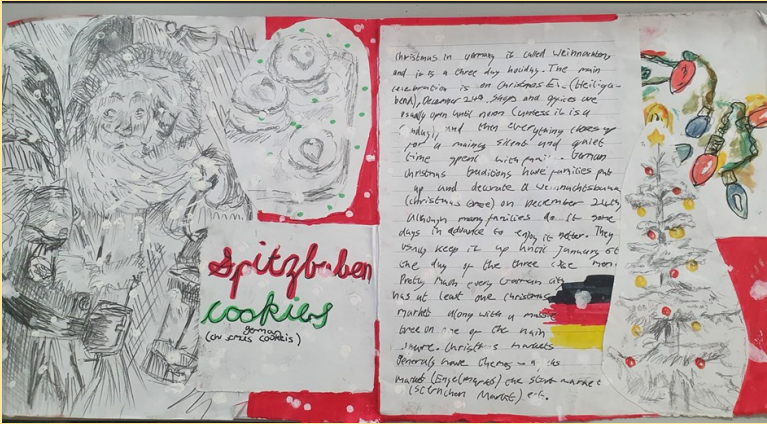 Spitzbuben
cookies
german
(christmas cookies)
Christmas in Germany is called Weihnachten
and it is a three day holiday. The main
celebration is on Christmas Ev (Heiliga-
bend), December 24th. Shops and offices are
usually open until noon (unless it is a
Sunday), and then everything closes up
for a mainly silent and quiet
time spent with famil. German
christmas traditions have families put
up and decorate a Weihnachtsbaum
(Christmas tree) on December 24th,
although many families do it some
days in advance to enjoy it better. They
usually keep it up until January 6th
the day of the three
Pretty Much every German city
has at least one christmas
market along with a
tree on one of the main
square. Christmas markets
generals have themes
market (Engelmarkt) the star market
(Sternchen Markt) etc.